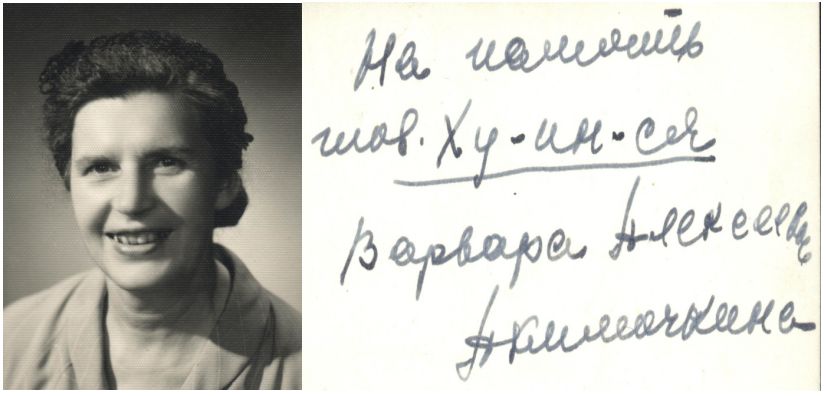 На память
тов. Ху-ин-ся
Варвара Алексеевна
Акимочкина